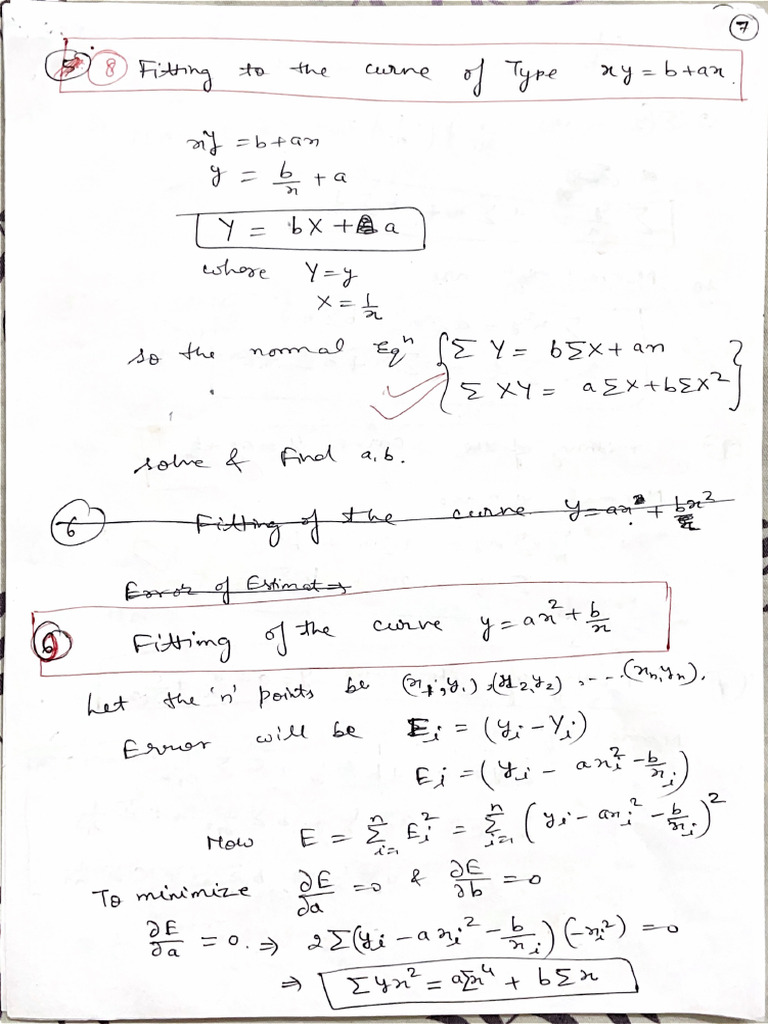 7
8 Fitting to the curve of Type xy = b+ax.
xy = b+ax
y = b/x + a
Y = bX + a
where Y = y
X = 1/x
so the normal Eqⁿ { Σ Y = bΣX + an
Σ XY = aΣX + bΣX² }
solve & Find a,b.
6 Fitting of the curve y = ax² + bx²
Error of Estimates
6 Fitting of the curve y = ax² + b/x
Let the 'n' points be (x₁,y₁),(x₂,y₂), .... (xₙ,yₙ).
Error will be Eᵢ = (yᵢ - Yᵢ)
Eᵢ = (yᵢ - axᵢ² - b/xᵢ)
Now E = Σᵢ₌₁ⁿ Eᵢ² = Σᵢ₌₁ⁿ (yᵢ - axᵢ² - b/xᵢ)²
To minimize ∂E/∂a = 0 & ∂E/∂b = 0
∂E/∂a = 0. ⇒ 2Σ(yᵢ - axᵢ² - b/xᵢ)(-xᵢ²) = 0
⇒ Σyx² = aΣx⁴ + bΣx